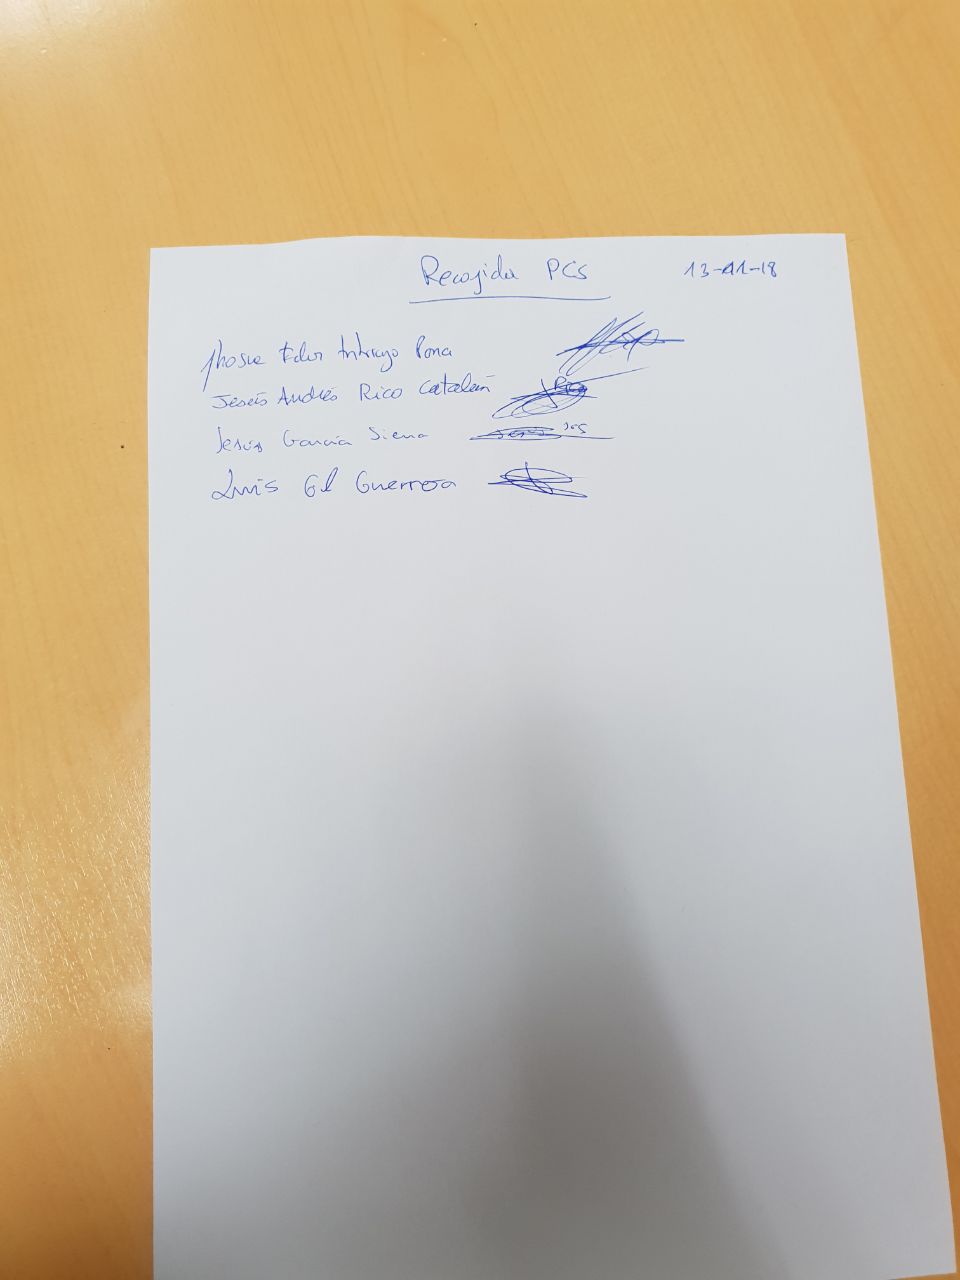 Recojida PCs 13-11-18
Jhosue Eder Intriago
Jesús Andrés Rico Catalán
Jesús García Siena
Luis Gil Guerrero